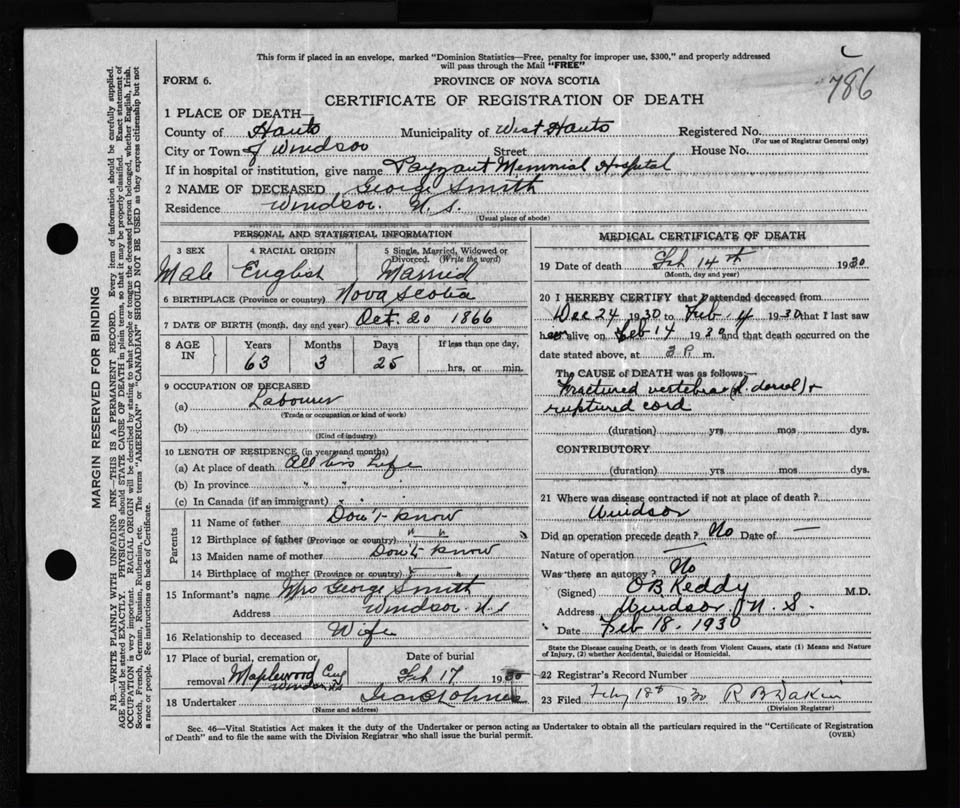 This form if placed in an envelope, marked "Dominion Statistics—Free, penalty for improper use, $300," and properly addressed
will pass through the Mail "FREE"
786
FORM 6.
PROVINCE OF NOVA SCOTIA
CERTIFICATE OF REGISTRATION OF DEATH
1 PLACE OF DEATH—
County of Hants Municipality of West Hants Registered No.
(For use of Registrar General only)
City or Town of Windsor Street House No.
If in hospital or institution, give name Payzant Memorial Hospital
2 NAME OF DECEASED George Smith
Residence Windsor. N. S.
(Usual place of abode)
PERSONAL AND STATISTICAL INFORMATION
3 SEX 4 RACIAL ORIGIN 5 Single, Married, Widowed or Divorced. (Write the word)
Male English Married
6 BIRTHPLACE (Province or country) Nova Scotia
7 DATE OF BIRTH (month, day and year) Oct. 20 1866
8 AGE IN Years Months Days If less than one day,
63 3 25 hrs. or min.
9 OCCUPATION OF DECEASED
(a) Labourer
(Trade or occupation or kind of work)
(b)
(Kind of industry)
10 LENGTH OF RESIDENCE (in years and months)
(a) At place of death All his Life
(b) In province " " "
(c) In Canada (if an immigrant) " " "
Parents
11 Name of father Don't know
12 Birthplace of father (Province or country) " "
13 Maiden name of mother Don't know
14 Birthplace of mother (Province or country)
15 Informant's name Mrs George Smith
Address Windsor. N.S
16 Relationship to deceased Wife
17 Place of burial, cremation or removal Maplewood Windsor N.S Date of burial Feb 17 1930
18 Undertaker
(Name and address)
MEDICAL CERTIFICATE OF DEATH
19 Date of death Feb 14th 1930
(Month, day and year)
20 I HEREBY CERTIFY that I attended deceased from
Dec 24 1930 to Feb 14 1930 that I last saw
him alive on Feb 14 1930 and that death occurred on the
date stated above, at 3 P. m.
The CAUSE OF DEATH was as follows:—
Fractured vertebrae dorsal) +
ruptured cord
(duration) yrs mos dys.
CONTRIBUTORY.
(duration) yrs mos. dys.
21 Where was disease contracted if not at place of death?
Windsor
Did an operation precede death? No Date of —
Nature of operation —
Was there an autopsy? No
(Signed) O B Keddy M.D.
Address Windsor N. S.
Date Feb 18 - 1930
State the Disease causing Death, or in death from Violent Causes, state (1) Means and Nature of Injury, (2) whether Accidental, Suicidal or Homicidal.
22 Registrar's Record Number
23 Filed Feby 18th 1930 R B Dakin
(Division Registrar)
Sec. 46—Vital Statistics Act makes it the duty of the Undertaker or person acting as Undertaker to obtain all the particulars required in the "Certificate of Registration
of Death" and to file the same with the Division Registrar who shall issue the burial permit.
(OVER)
MARGIN RESERVED FOR BINDING
N.B.—WRITE PLAINLY WITH UNFADING INK—THIS IS A PERMANENT RECORD. Every item of information should be carefully supplied.
AGE should be stated EXACTLY. PHYSICIANS should STATE CAUSE OF DEATH in plain terms, so that it may be properly classified. Exact statement of
OCCUPATION is very important. RACIAL ORIGIN will be described by stating to what people or tongue the deceased person belonged, whether English, Irish,
Scotch, French, German, Russian, Ruthenian, etc. The terms "AMERICAN" or "CANADIAN" SHOULD NOT BE USED as they express citizenship but not
a race or people. See instructions on back of Certificate.